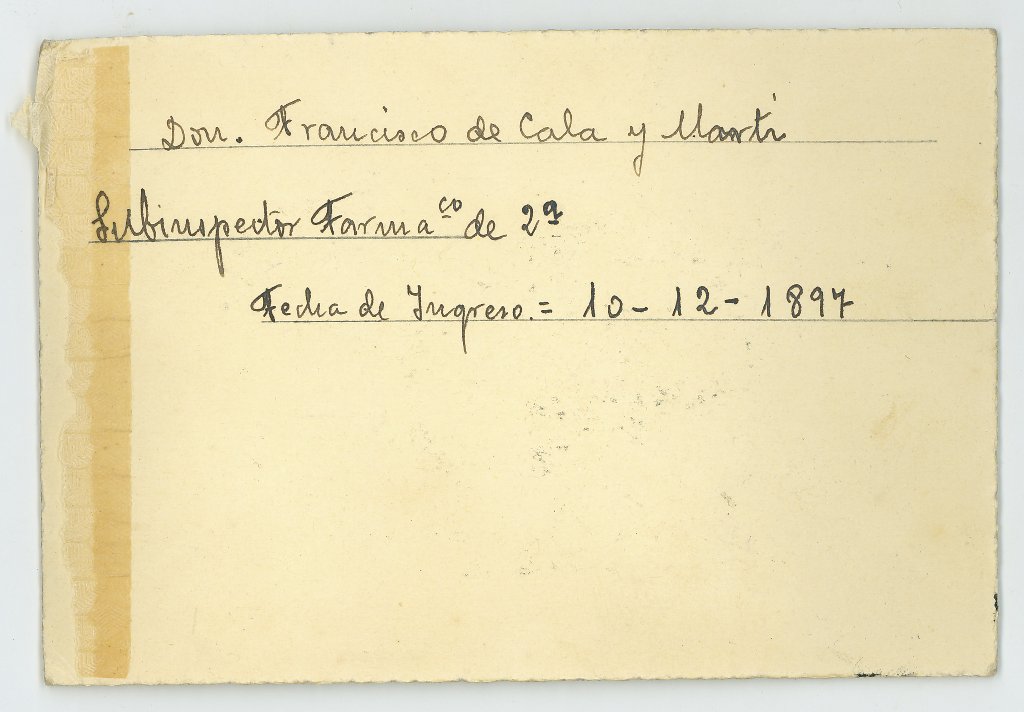 Don. Francisco de Cala y Martí
Subinspector Farmaco de 2ª
Fecha de Ingreso.= 10-12-1897